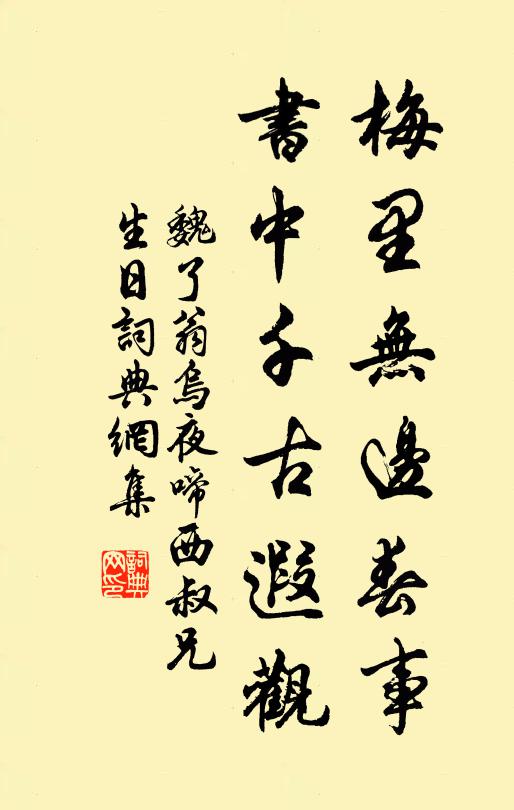 梅里無邊春事
書中千古遐觀
魏了翁烏夜啼西叔兄
生日詞典網集
詞典
网印